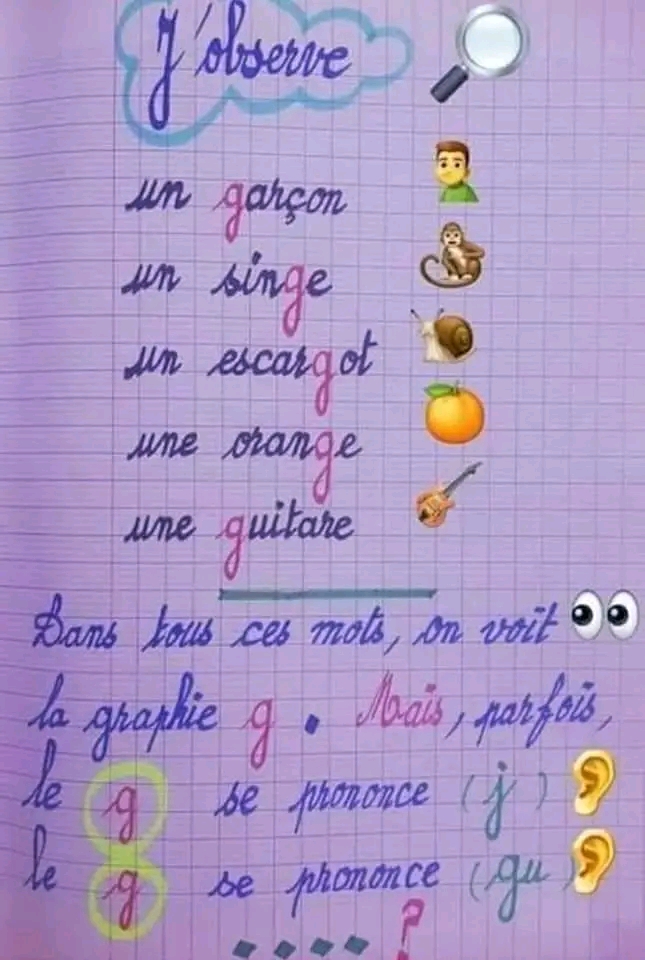 J'observe
un garçon
un singe
un escargot
une orange
une guitare
Dans tous ces mots, on voit
la graphie g. Mais, parfois,
le g se prononce (j)
le g se prononce (gu)
.... ?